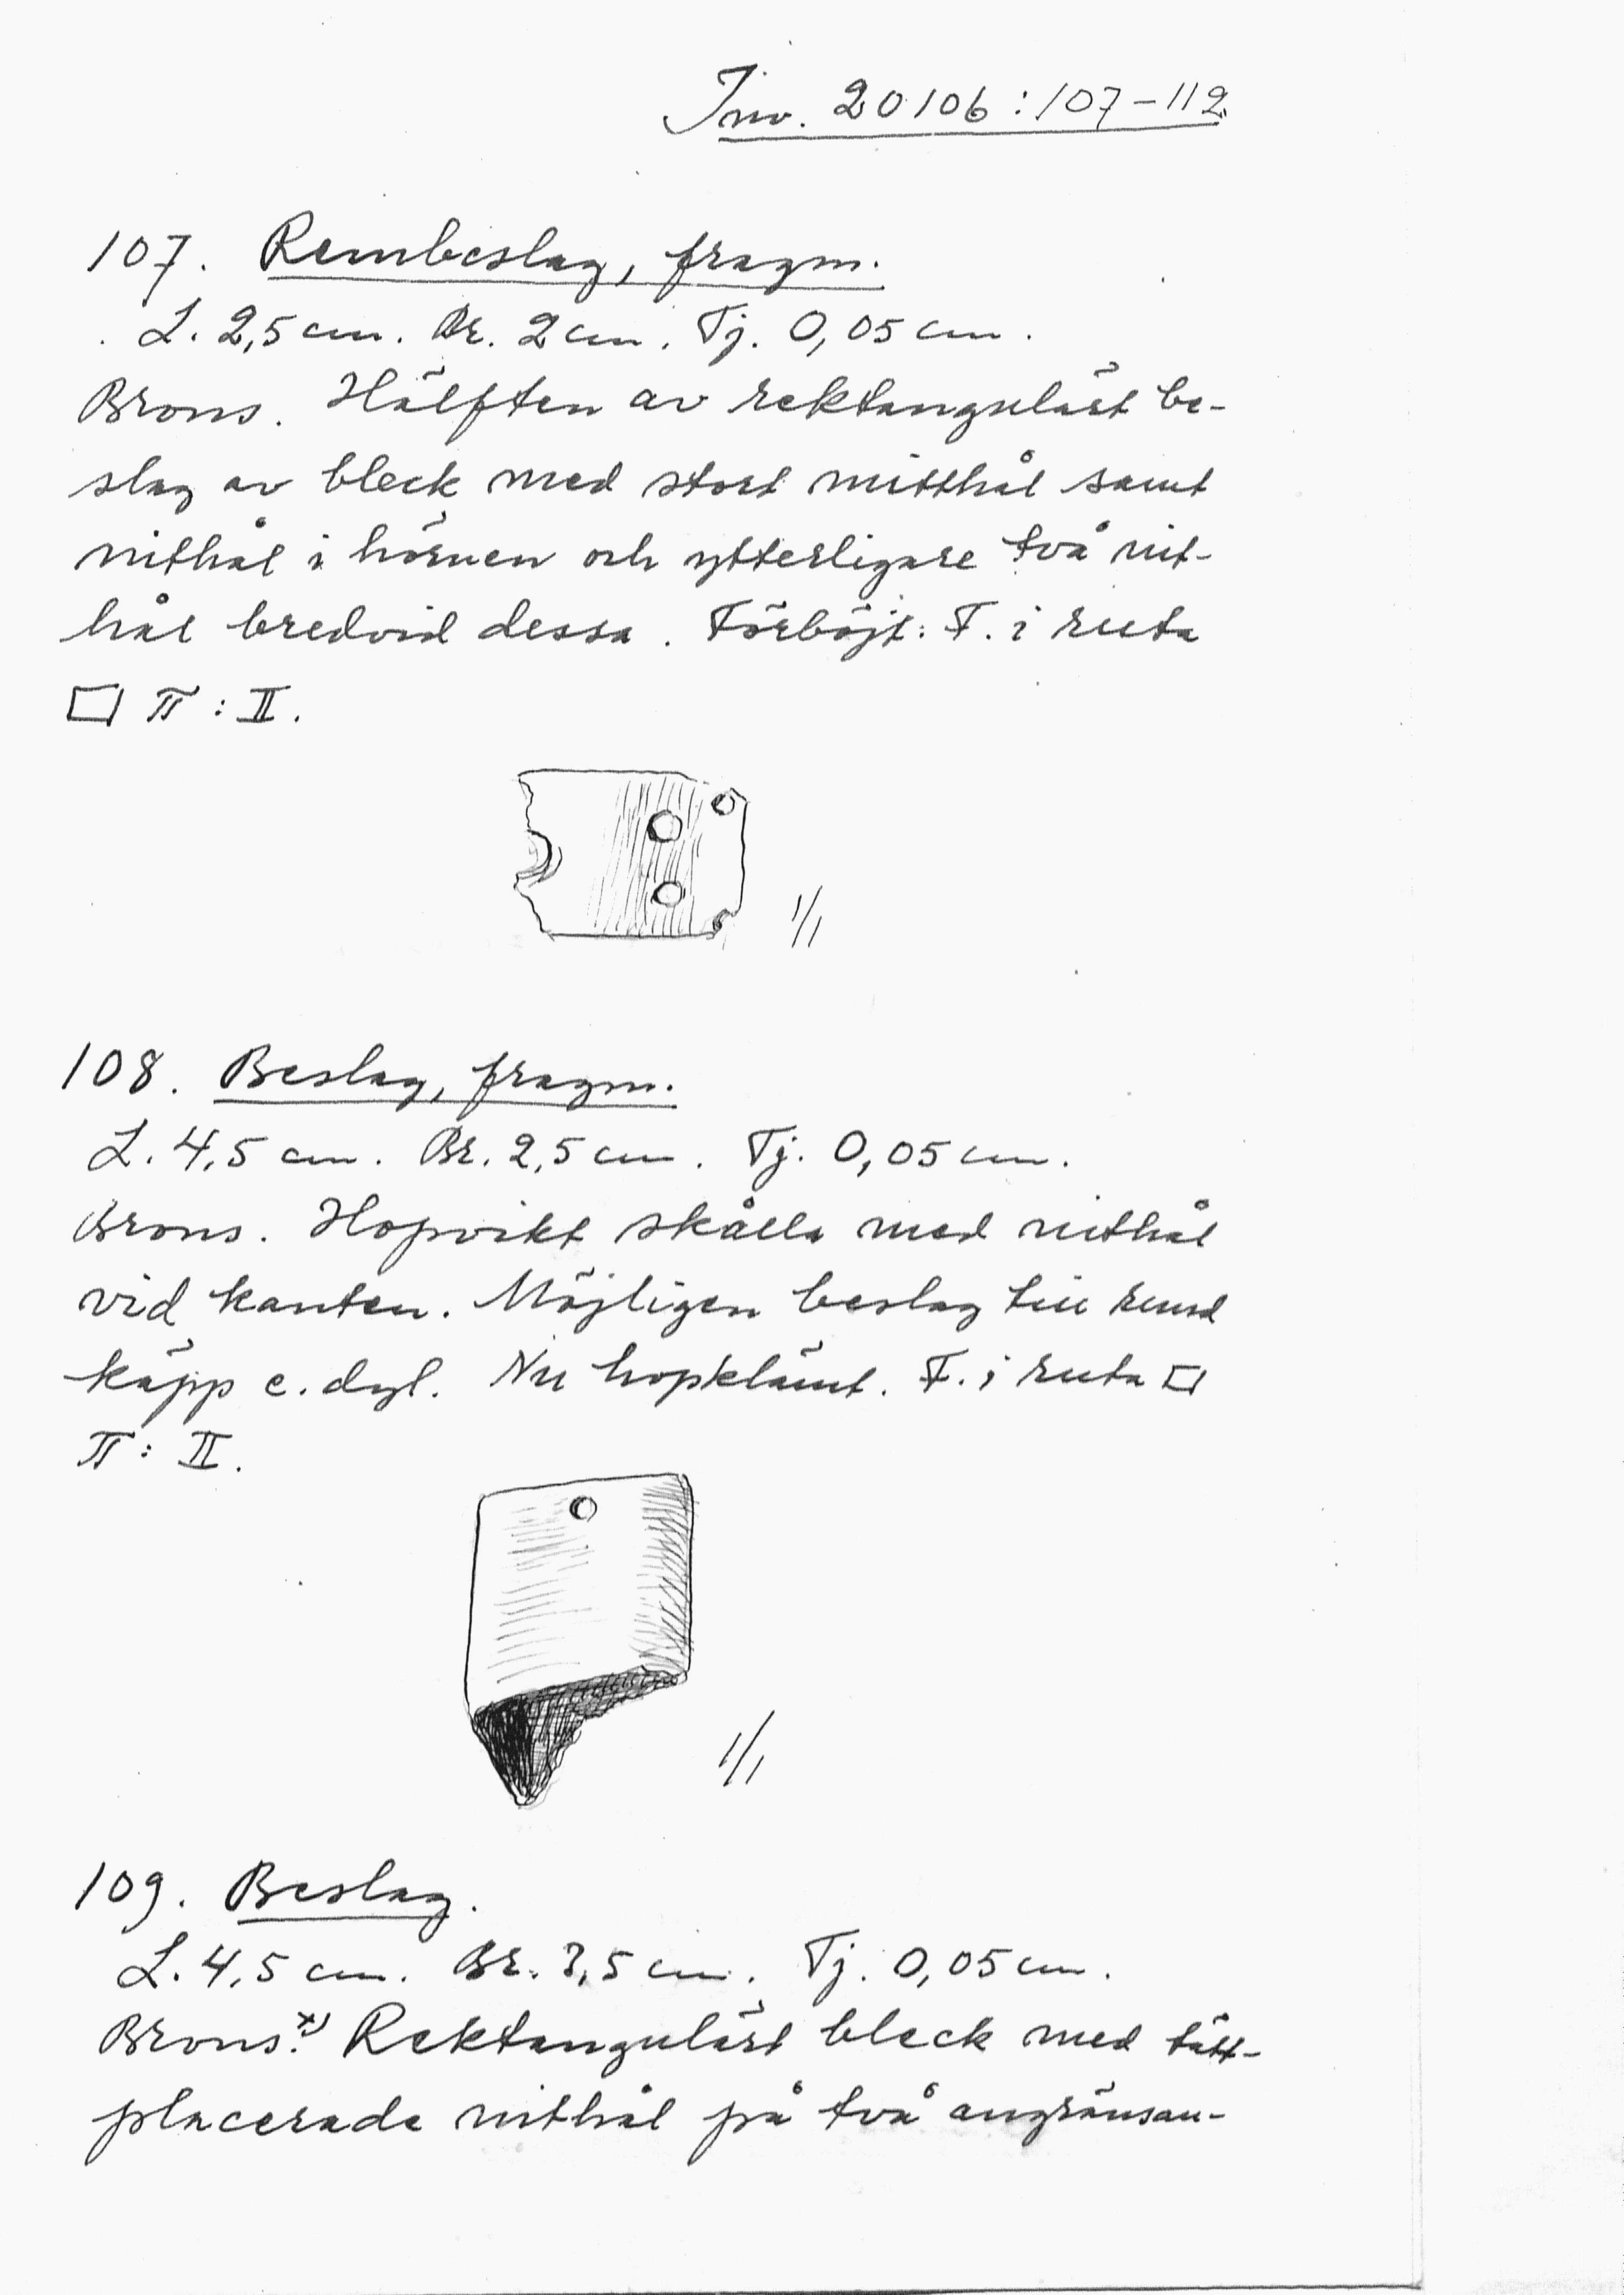 Inv. 20106:107–112
107. Rembeslag, fragm.
L. 2,5 cm. Br. 2 cm. Tj. 0,05 cm.
Brons. Hälften av rektangulärt be-
slag av bleck med stort mitthål samt
nithål i hörnen och ytterligare två nit-
hål bredvid dessa. Förböjt. F. i ruta
□ π : II.
1/1
108. Beslag, fragm.
L. 4,5 cm. Br. 2,5 cm. Tj. 0,05 cm.
Brons. Hopvikt skålla med nithål
vid kanten. Möjligen beslag till rund
käpp e. dyl. Nu hopklämt. F. i ruta □
π : II.
1/1
109. Beslag.
L. 4,5 cm. Br. 3,5 cm. Tj. 0,05 cm.
Brons.*) Rektangulärt bleck med tätt-
placerade nithål på två angränsan-